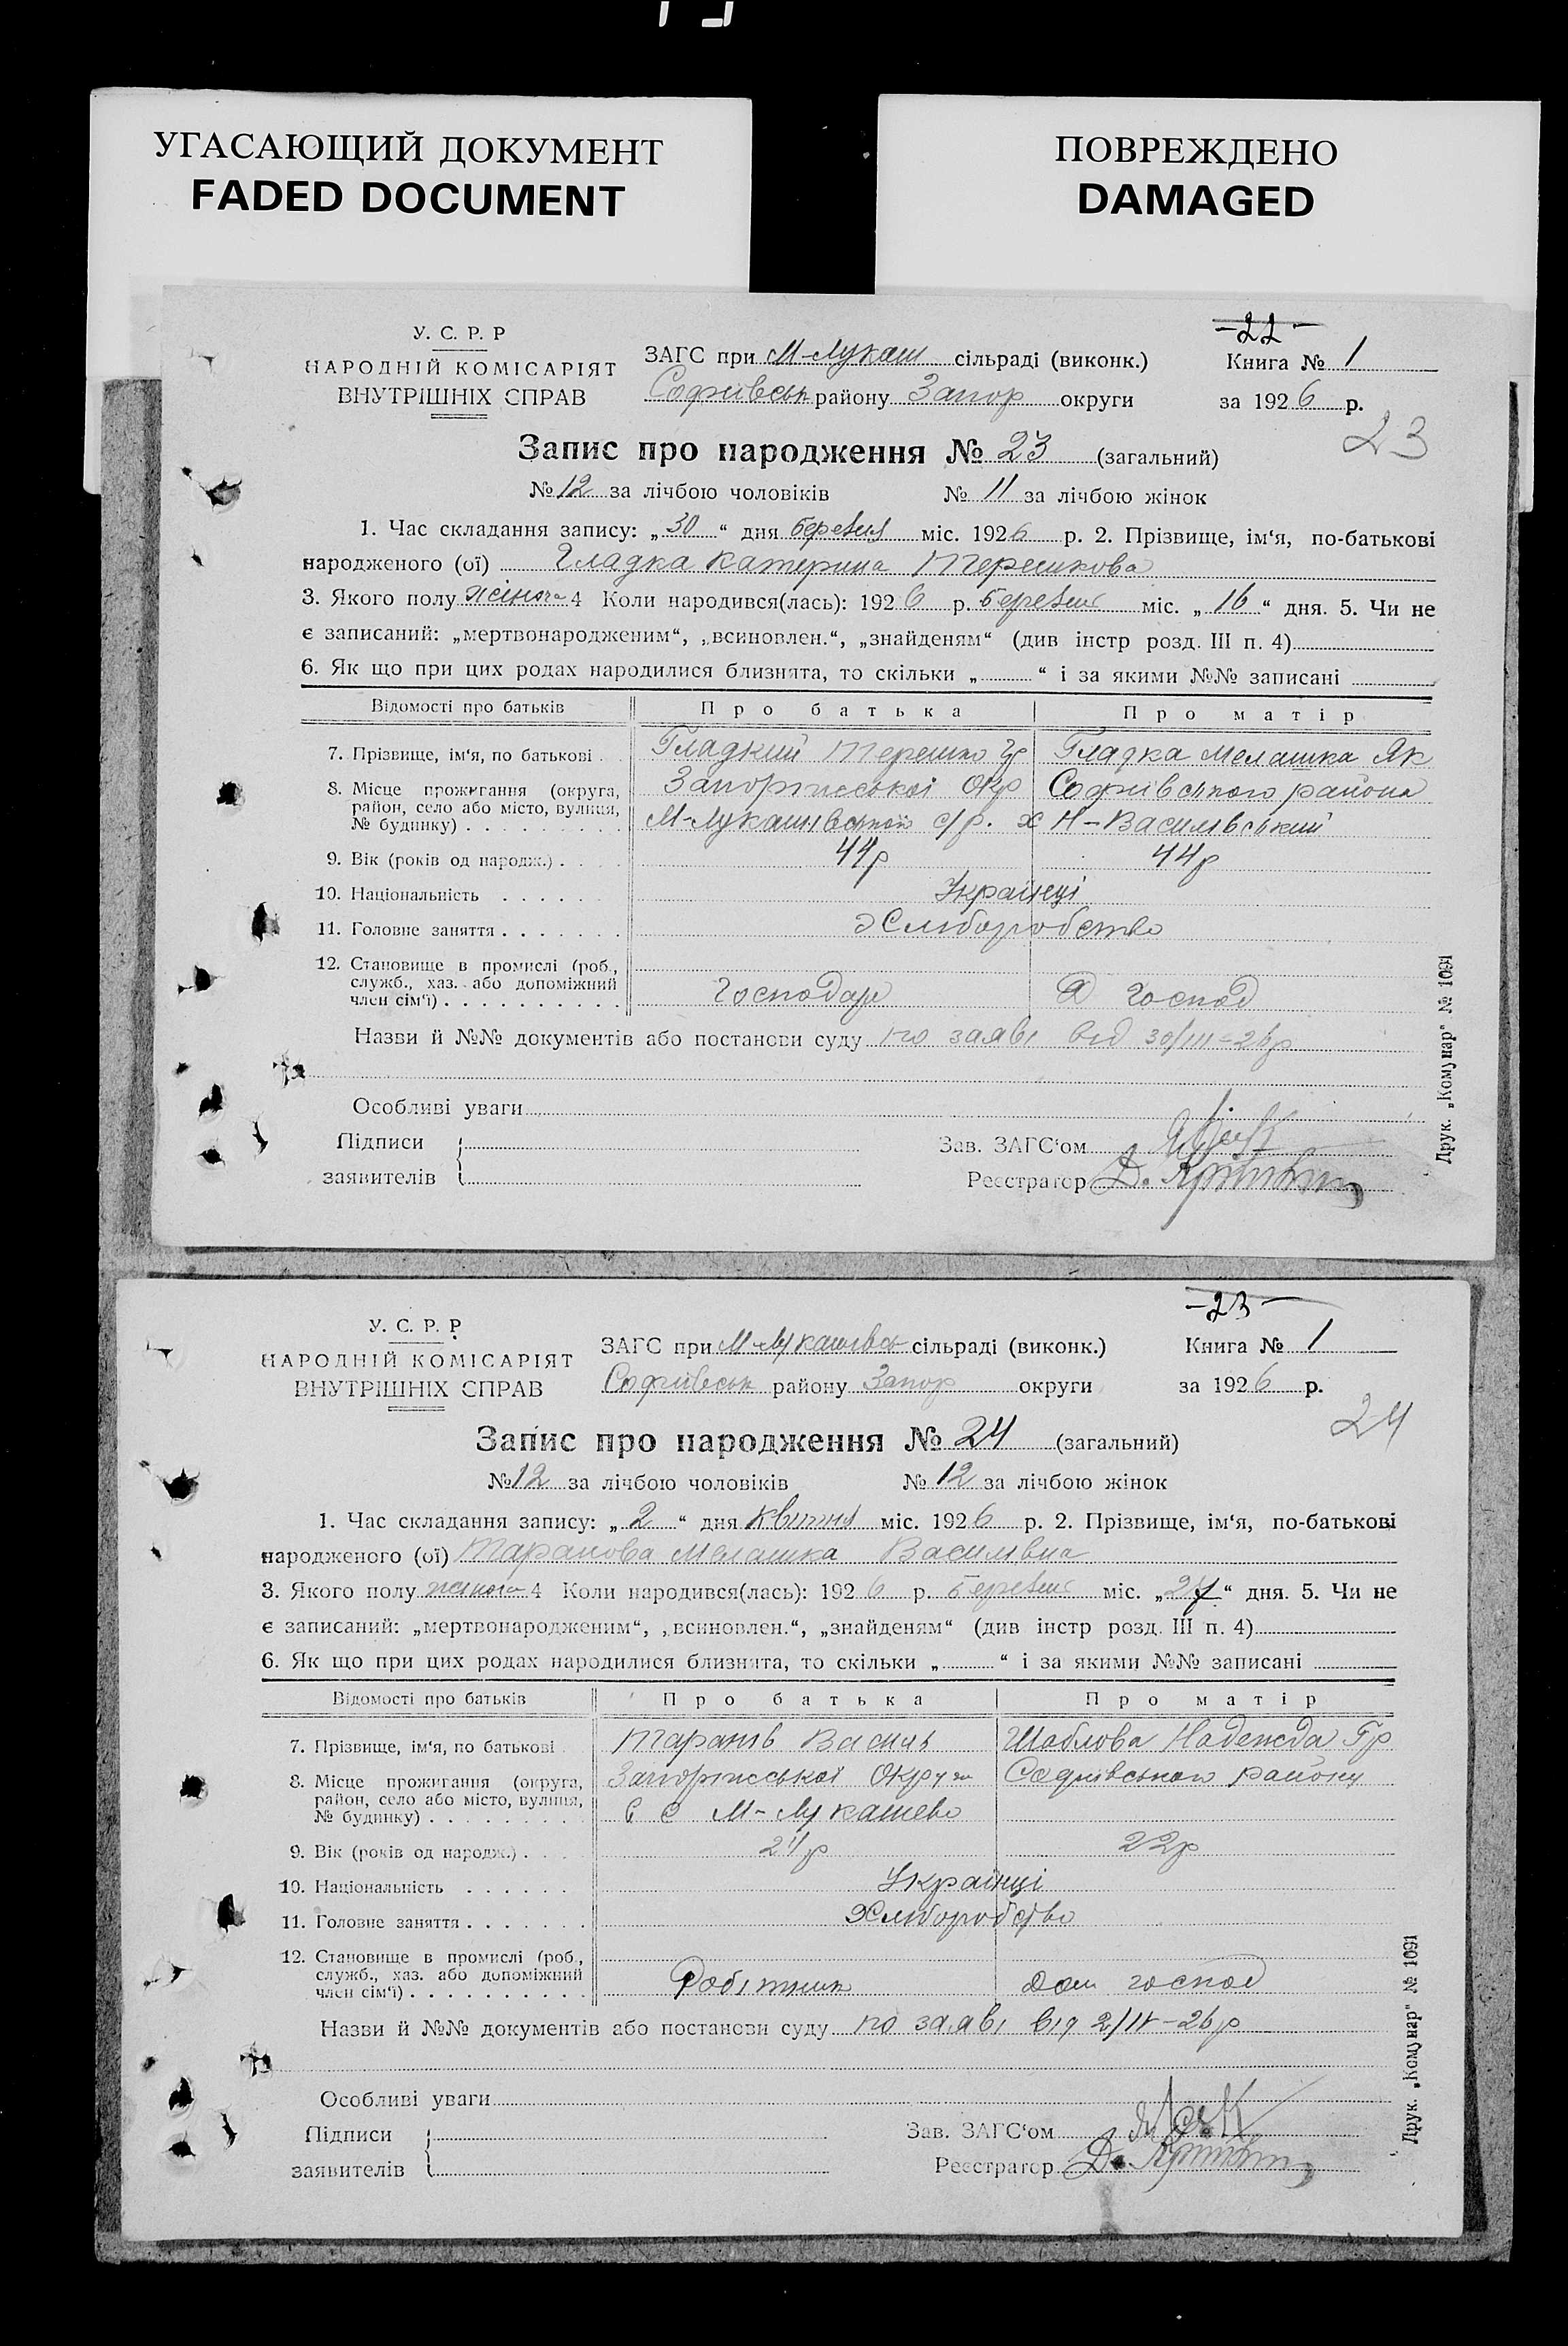 УГАСАЮЩИЙ ДОКУМЕНТ
FADED DOCUMENT
ПОВРЕЖДЕНО
DAMAGED
-22-
У. С. Р. Р
НАРОДНІЙ КОМІСАРІЯТ
ВНУТРІШНІХ СПРАВ
ЗАГС при М-Лукаш сільраді (виконк.)
Софиївськ району Запор округи
Книга № 1
за 1926 р.
23
Запис про народження № 23 (загальний)
№ 12 за лічбою чоловіків № 11 за лічбою жінок
1. Час складання запису: „30“ дня березня міс. 1926 р. 2. Прізвище, ім‘я, по-батькові
народженого (ої) Гладка Катерина Терешкова
3. Якого полу жіноча 4 Коли народився(лась): 1926 р. березня міс. „16“ дня. 5. Чи не
є записаний: „мертвонародженим“, „всиновлен.“, „знайденям“ (див інстр розд. III п. 4)
6. Як що при цих родах народилися близнята, то скільки „ “ і за якими №№ записані
Відомості про батьків Про батька Про матір
7. Прізвище, ім‘я, по батькові Гладкий Терешко Гр Гладка Мелашка Як
8. Місце прожигання (округа, район, село або місто, вулиця, № будинку) Запоріжської Окр Софиївського района
М-Лукашівської с/р. х Н-Василівський
9. Вік (років од народж.) 44р 44р
10. Національність Українці
11. Головне заняття Хліборобство
12. Становище в промислі (роб., служб., хаз. або допоміжний член сім‘ї) Господар Д господ
Назви й №№ документів або постанови суду по заяві від 30/III-26р
Особливі уваги
Підписи
заявителів
Зав. ЗАГС‘ом
Реєстратор Д.
Друк. „Комунар“ № 1091
-23-
У. С. Р. Р
НАРОДНІЙ КОМІСАРІЯТ
ВНУТРІШНІХ СПРАВ
ЗАГС при М-Лукашівсь сільраді (виконк.)
Софиївськ району Запор округи
Книга № 1
за 1926 р.
24
Запис про народження № 24 (загальний)
№ 12 за лічбою чоловіків № 12 за лічбою жінок
1. Час складання запису: „2“ дня квітня міс. 1926 р. 2. Прізвище, ім‘я, по-батькові
народженого (ої) Таранова Мелашка Василівна
3. Якого полу жіноча 4 Коли народився(лась): 1926 р. березня міс. „27“ дня. 5. Чи не
є записаний: „мертвонародженим“, „всиновлен.“, „знайденям“ (див інстр розд. III п. 4)
6. Як що при цих родах народилися близнята, то скільки „ “ і за якими №№ записані
Відомості про батьків Про батька Про матір
7. Прізвище, ім‘я, по батькові Таранів Василь Шаблова Надежда Гр
8. Місце прожигання (округа, район, село або місто, вулиця, № будинку) Запоріжської Округи Софиївського району
в с М-Лукашево
9. Вік (років од народж.) 21р 22р
10. Національність Українці
11. Головне заняття Хліборобство
12. Становище в промислі (роб., служб., хаз. або допоміжний член сім‘ї) Робітник Дом господ
Назви й №№ документів або постанови суду по заяві від 2/IV-26р
Особливі уваги
Підписи
заявителів
Зав. ЗАГС‘ом
Реєстратор Д.
Друк. „Комунар“ № 1091